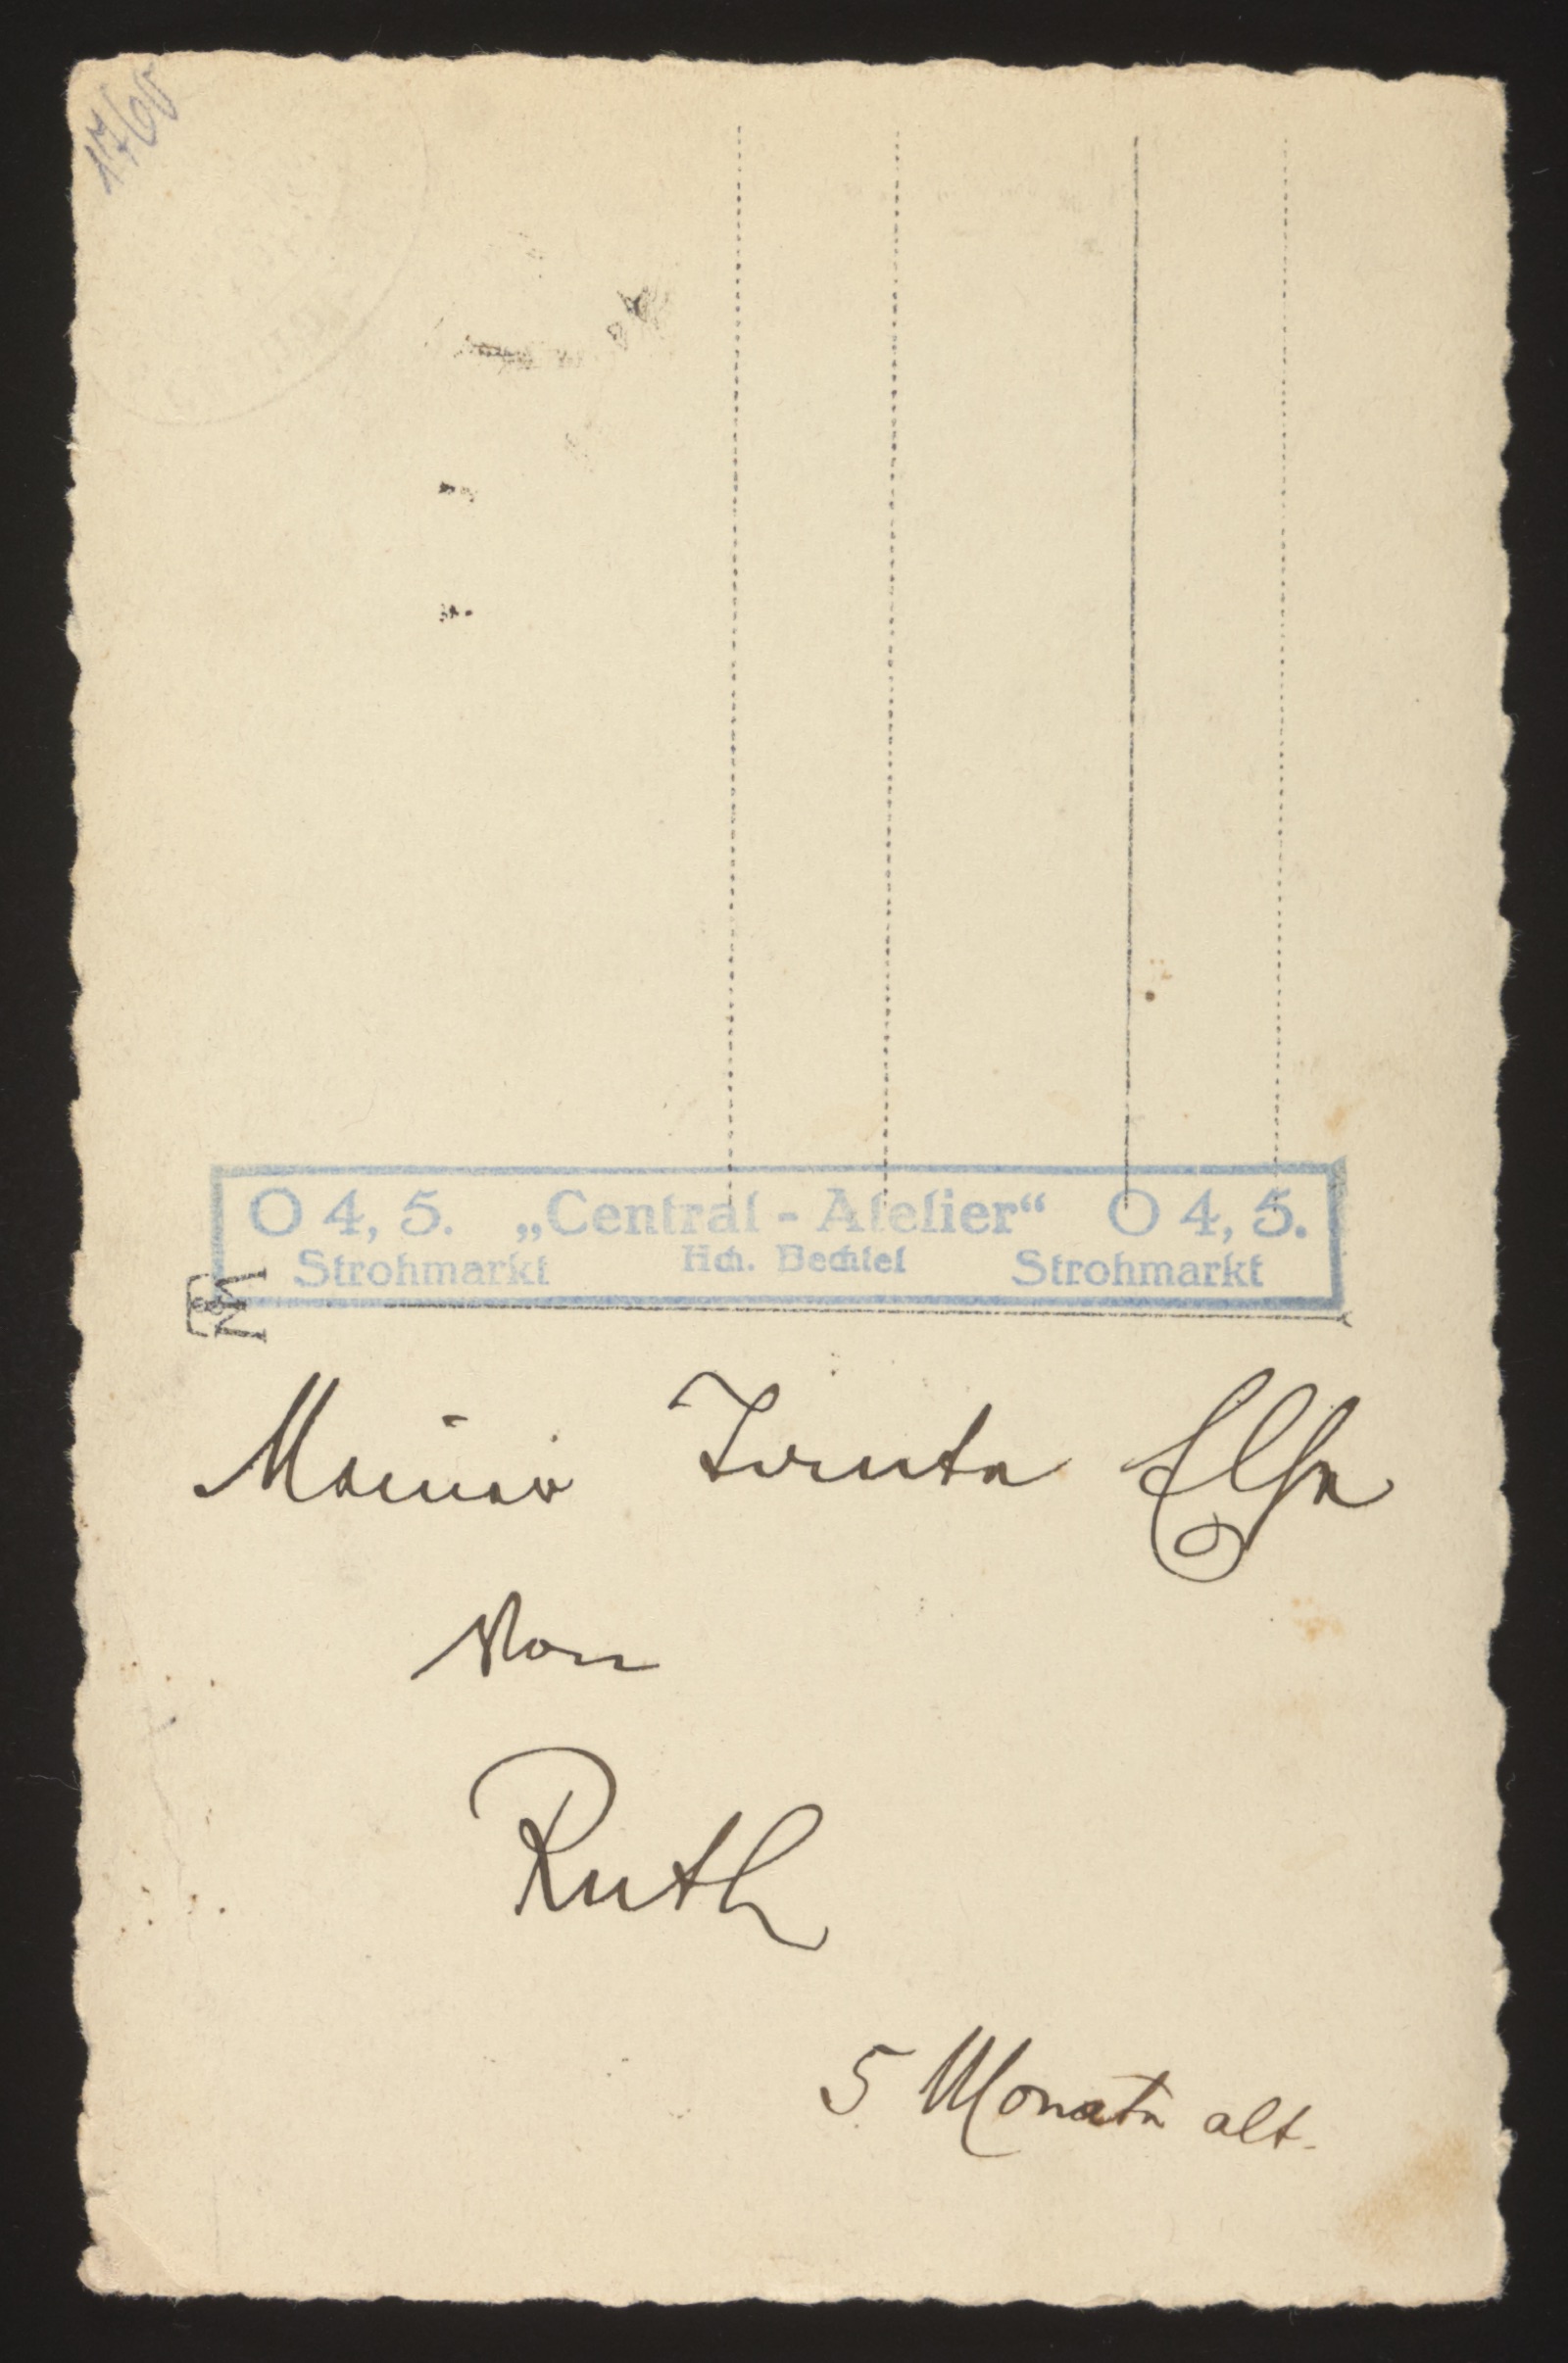 1760
O 4, 5. „Central - Atelier“ O 4, 5.
Strohmarkt Hch. Bechtel Strohmarkt
Meiner Tante Else
Von
Ruth
5 Monate alt.